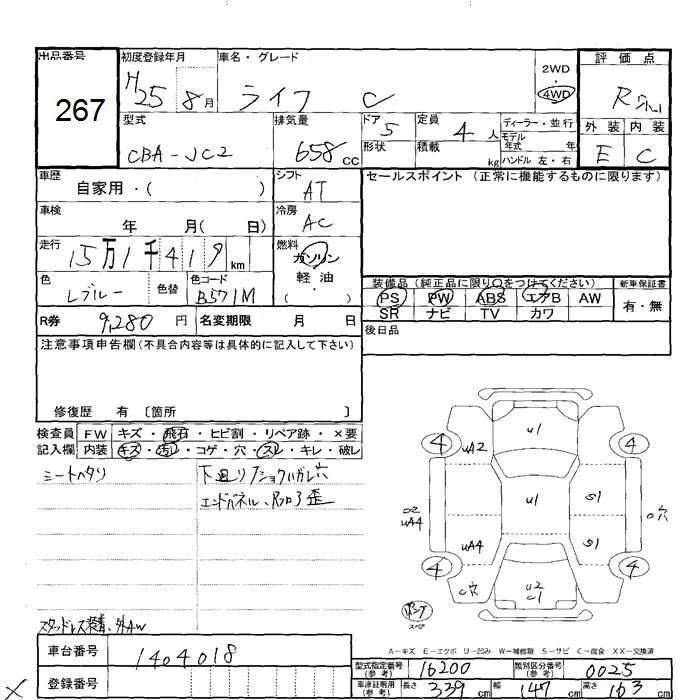 出品番号 初度登録年月 車名・グレード 2WD 評価点
267 H25 8月 ライフ C 4WD R
型式 排気量 ドア 定員 ディーラー・並行 外装 内装
CBA-JC2 658cc 5 4人 モデル年式 年 E C
形状 積載 kg ハンドル 左・右
車歴 シフト セールスポイント (正常に機能するものに限ります)
自家用・( ) AT
車検 冷房
年 月( 日) AC
走行 燃料
15万1千419km ガソリン
色 色替 色コード 軽油
レブルー B571M ( )
装備品(純正品に限り○をつけてください) 新車保証書
PS PW ABS エアB AW 有・無
SR ナビ TV カワ
R券 9,280円 名変期限 月 日 後日品
注意事項申告欄(不具合内容等は具体的に記入して下さい)
修復歴 有 〔箇所 〕
検査員 FW キズ・飛石・ヒビ割・リペア跡・×要
記入欄 内装 キズ・汚レ・コゲ・穴・スレ・キレ・破レ
シートヘタリ 下廻りフショクハガレ穴
エンドパネル、Rフロア歪
U1
4 UA2 4
U1 S1
02 UA4 ○穴
UA4 S1
4 C穴 U2 C1 4
パンク
スペア
スタッドレス装着、外AW
A-キズ E-エクボ U-凹み W-補修跡 S-サビ C-腐食 XX-交換済
車台番号 1404018
型式指定番号(参考) 16200 類別区分番号(参考) 0025
登録番号
車庫証明用(参考) 長さ 339cm 幅 147cm 高さ 163cm
×